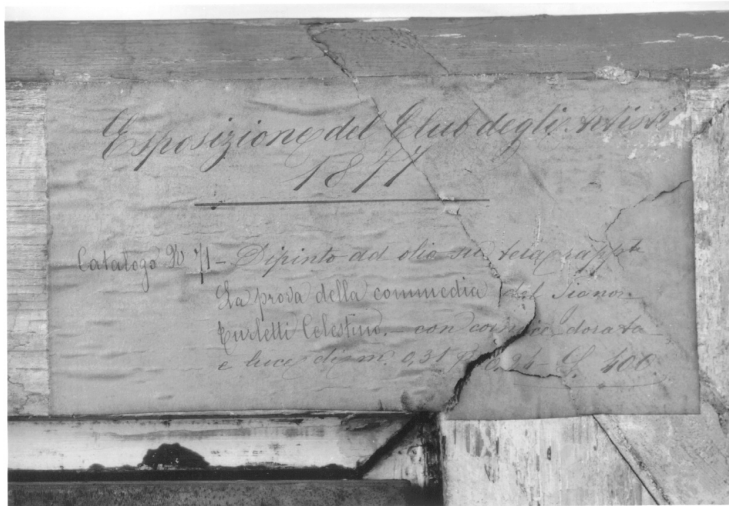 Esposizione del Club degli Artisti
1877
Catalogo N 71 - Dipinto ad olio su tela rappte
La prova della commedia del Signor
Turletti Celestino. con cornice dorata
e luce di m. 0,31 0,24 L. 400.